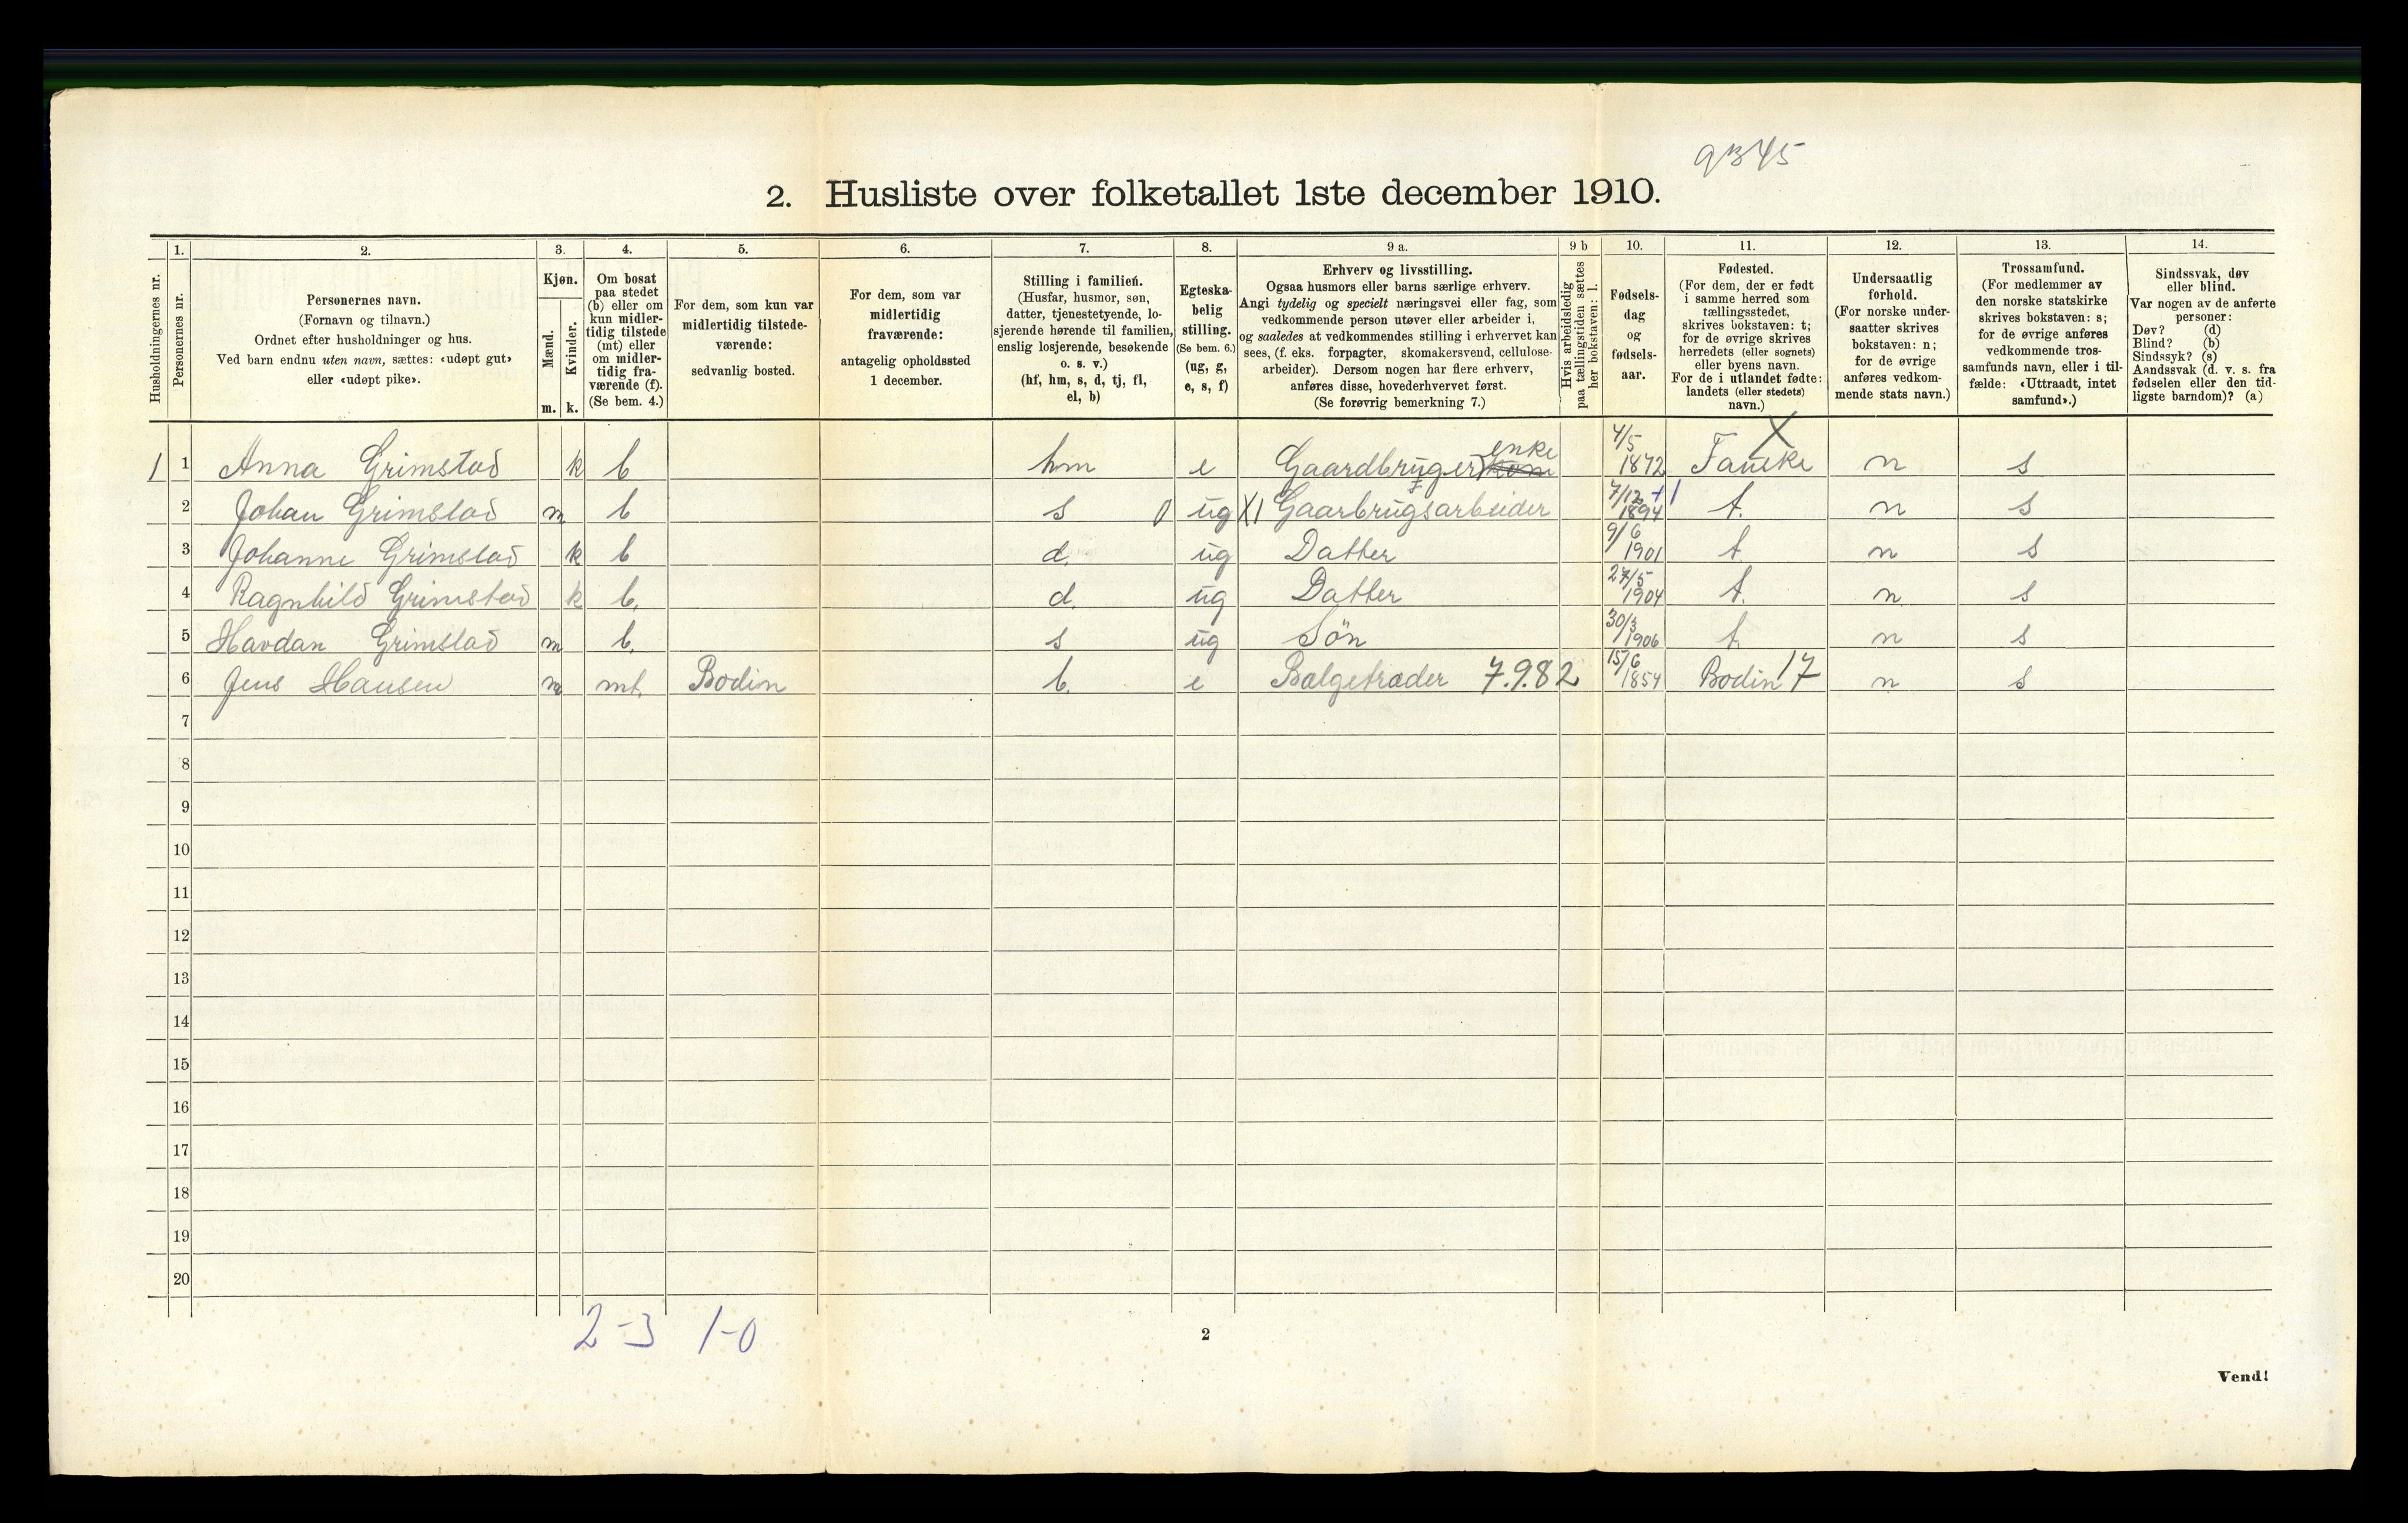 9345
2. Husliste over folketallet 1ste december 1910.
Husholdningernes nr.
1.
Personernes nr.
2.
Personernes navn.
(Fornavn og tilnavn.)
Ordnet efter husholdninger og hus.
Ved barn endnu uten navn, sættes: «udøpt gut»
eller «udøpt pike».
3.
Kjøn.
Mænd.
Kvinder.
m. k.
4.
Om bosat
paa stedet
(b) eller om
kun midler-
tidig tilstede
(mt) eller
om midler-
tidig fra-
værende (f).
(Se bem. 4.)
5.
For dem, som kun var
midlertidig tilstede-
værende:
sedvanlig bosted.
6.
For dem, som var
midlertidig
fraværende:
antagelig opholdssted
1 december.
7.
Stilling i familien.
(Husfar, husmor, søn,
datter, tjenestetyende, lo-
sjerende hørende til familien,
enslig losjerende, besøkende
o. s. v.)
(hf, hm, s, d, tj, fl,
el, b)
8.
Egteska-
belig
stilling.
(Se bem. 6.)
(ug, g,
e, s, f)
9 a.
Erhverv og livsstilling.
Ogsaa husmors eller barns særlige erhverv.
Angi tydelig og specielt næringsvei eller fag, som
vedkommende person utøver eller arbeider i,
og saaledes at vedkommendes stilling i erhvervet kan
sees, (f. eks. forpagter, skomakersvend, cellulose-
arbeider). Dersom nogen har flere erhverv,
anføres disse, hovederhvervet først.
(Se forøvrig bemerkning 7.)
9 b
Hvis arbeidsledig
paa tællingstiden sættes
her bokstaven: l.
10.
Fødsels-
dag
og
fødsels-
aar.
11.
Fødested.
(For dem, der er født
i samme herred som
tællingsstedet,
skrives bokstaven: t;
for de øvrige skrives
herredets (eller sognets)
eller byens navn.
For de i utlandet fødte:
landets (eller stedets)
navn.)
12.
Undersaatlig
forhold.
(For norske under-
saatter skrives
bokstaven: n;
for de øvrige
anføres vedkom-
mende stats navn.)
13.
Trossamfund.
(For medlemmer av
den norske statskirke
skrives bokstaven: s;
for de øvrige anføres
vedkommende tros-
samfunds navn, eller i til-
fælde: «Uttraadt, intet
samfund».)
14.
Sindssvak, døv
eller blind.
Var nogen av de anførte
personer:
Døv? (d)
Blind? (b)
Sindssyk? (s)
Aandssvak (d. v. s. fra
fødselen eller den tid-
ligste barndom)? (a)
1 1 Anna Grimstad k b hm e Gaardbruger kone enke 4/5 1872 Fauske X n s
2 Johan Grimstad m b s 0 ug X1 Gaarbrugsarbeider 7/12 1894 +1 t. n s
3 Johanne Grimstad k b d. ug Datter 9/6 1901 t n s
4 Ragnhild Grimstad k b. d. ug Datter 27/5 1904 t. n s
5 Havdan Grimstad m b. s ug Søn 30/3 1906 t. n s
6 Jens Hansen m mt. Bodin b. e Bælgetræder 7.9.82 15/6 1854 Bodin 17 n s
7
8
9
10
11
12
13
14
15
16
17
18
19
20
2-3 1-0
2
Vend!